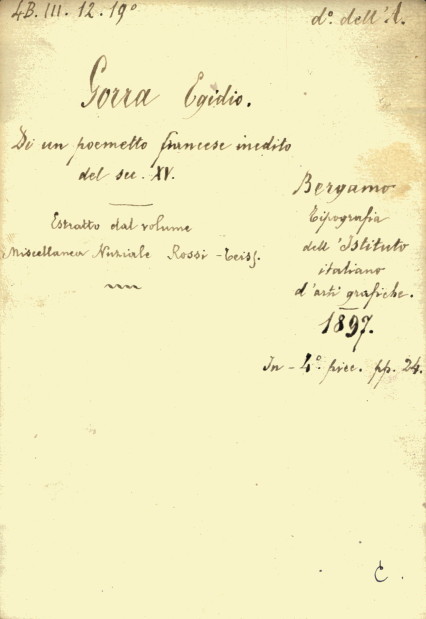 4B. III. 12. 19°
d°. dell'A.
Gorra Egidio.
Di un poemetto francese inedito
del sec. XV.
Estratto dal volume
Miscellanea Nuziale Rossi - Teiss.
Bergamo
Tipografia
dell'Istituto
italiano
d'arti grafiche.
1897.
In - 4°. picc. pp. 24.
C.